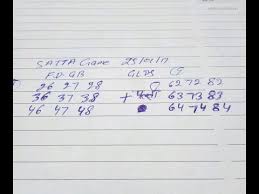 SATTA Game 25/01/17
F.D GB GLDS G
26 27 28 62 72 82
36 37 38 + 63 73 83
46 47 48 64 74 84